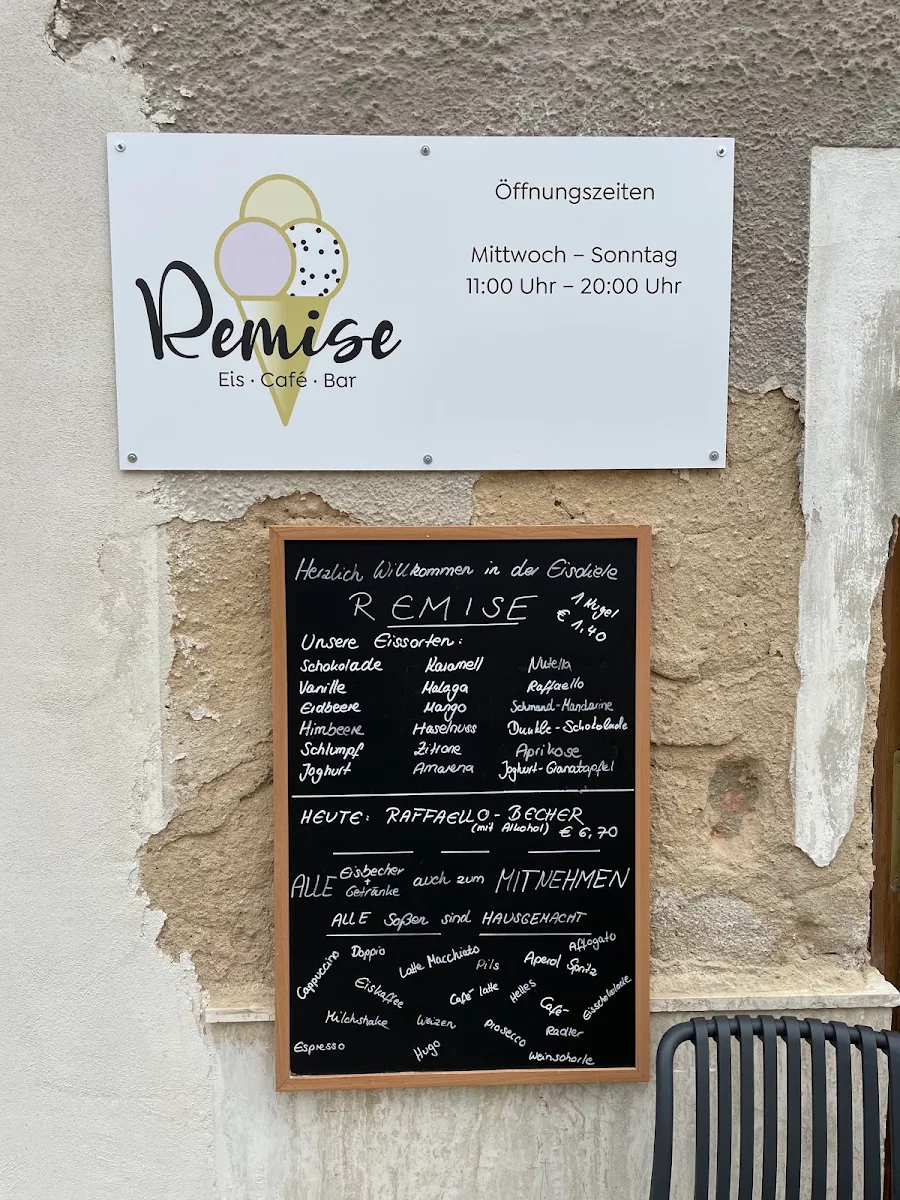 Öffnungszeiten
Mittwoch – Sonntag
11:00 Uhr – 20:00 Uhr
Remise
Eis · Café · Bar
Herzlich Willkommen in der Eisdiele
REMISE
1 Kugel
€ 1,40
Unsere Eissorten:
Schokolade Karamell Nutella
Vanille Malaga Raffaello
Erdbeere Mango Schmand-Mandarine
Himbeere Haselnuss Dunkle-Schokolade
Schlumpf Zitrone Aprikose
Joghurt Amarena Joghurt-Granatapfel
HEUTE: RAFFAELLO-BECHER
(mit Alkohol) € 6,70
ALLE Eisbecher + Getränke auch zum MITNEHMEN
ALLE Soßen sind HAUSGEMACHT
Cappuccino
Doppio
Latte Macchiato
Pils
Aperol Spritz
Affogato
Eiskaffee
Café latte
Helles
Café-
Eisschokolade
Milchshake
Weizen
Prosecco
Radler
Espresso
Hugo
Weinschorle